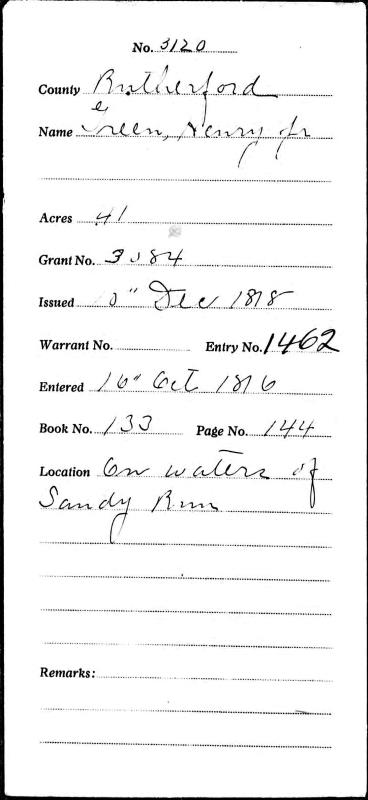 No. 3120
County Rutherford
Name Green, Henry Jr
Acres 41
Grant No. 3084
Issued 10" Dec 1818
Warrant No. Entry No. 1462
Entered 16" Oct 1816
Book No. 133 Page No. 144
Location On waters of
Sandy Run
Remarks: